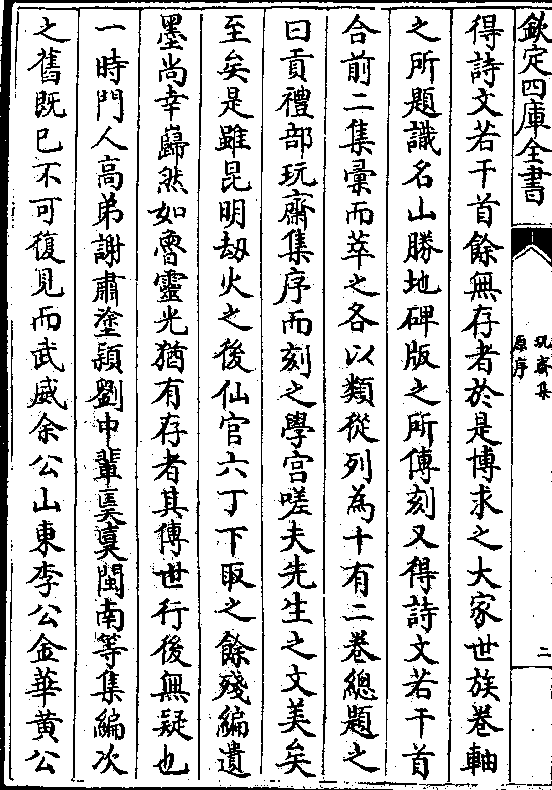 欽定四庫全書
玩齋集
原序
二
得詩文若干首餘無存者於是博求之大家世族巻軸
之所題識名山勝地碑版之所傳刻又得詩文若干首
合前二集彚而萃之各以類從列為十有二巻總題之
曰貢禮部玩齋集序而刻之學宫嗟夫先生之文美矣
至矣是雖昆明劫火之後仙官六丁下取之餘殘編遺
墨尚幸巋然如魯靈光猶有存者其傳世行後無疑也
一時門人高弟謝肅塗潁劉中輩𫟪燕閩南等集編次
之舊既已不可復見而武威余公山東李公金華黄公